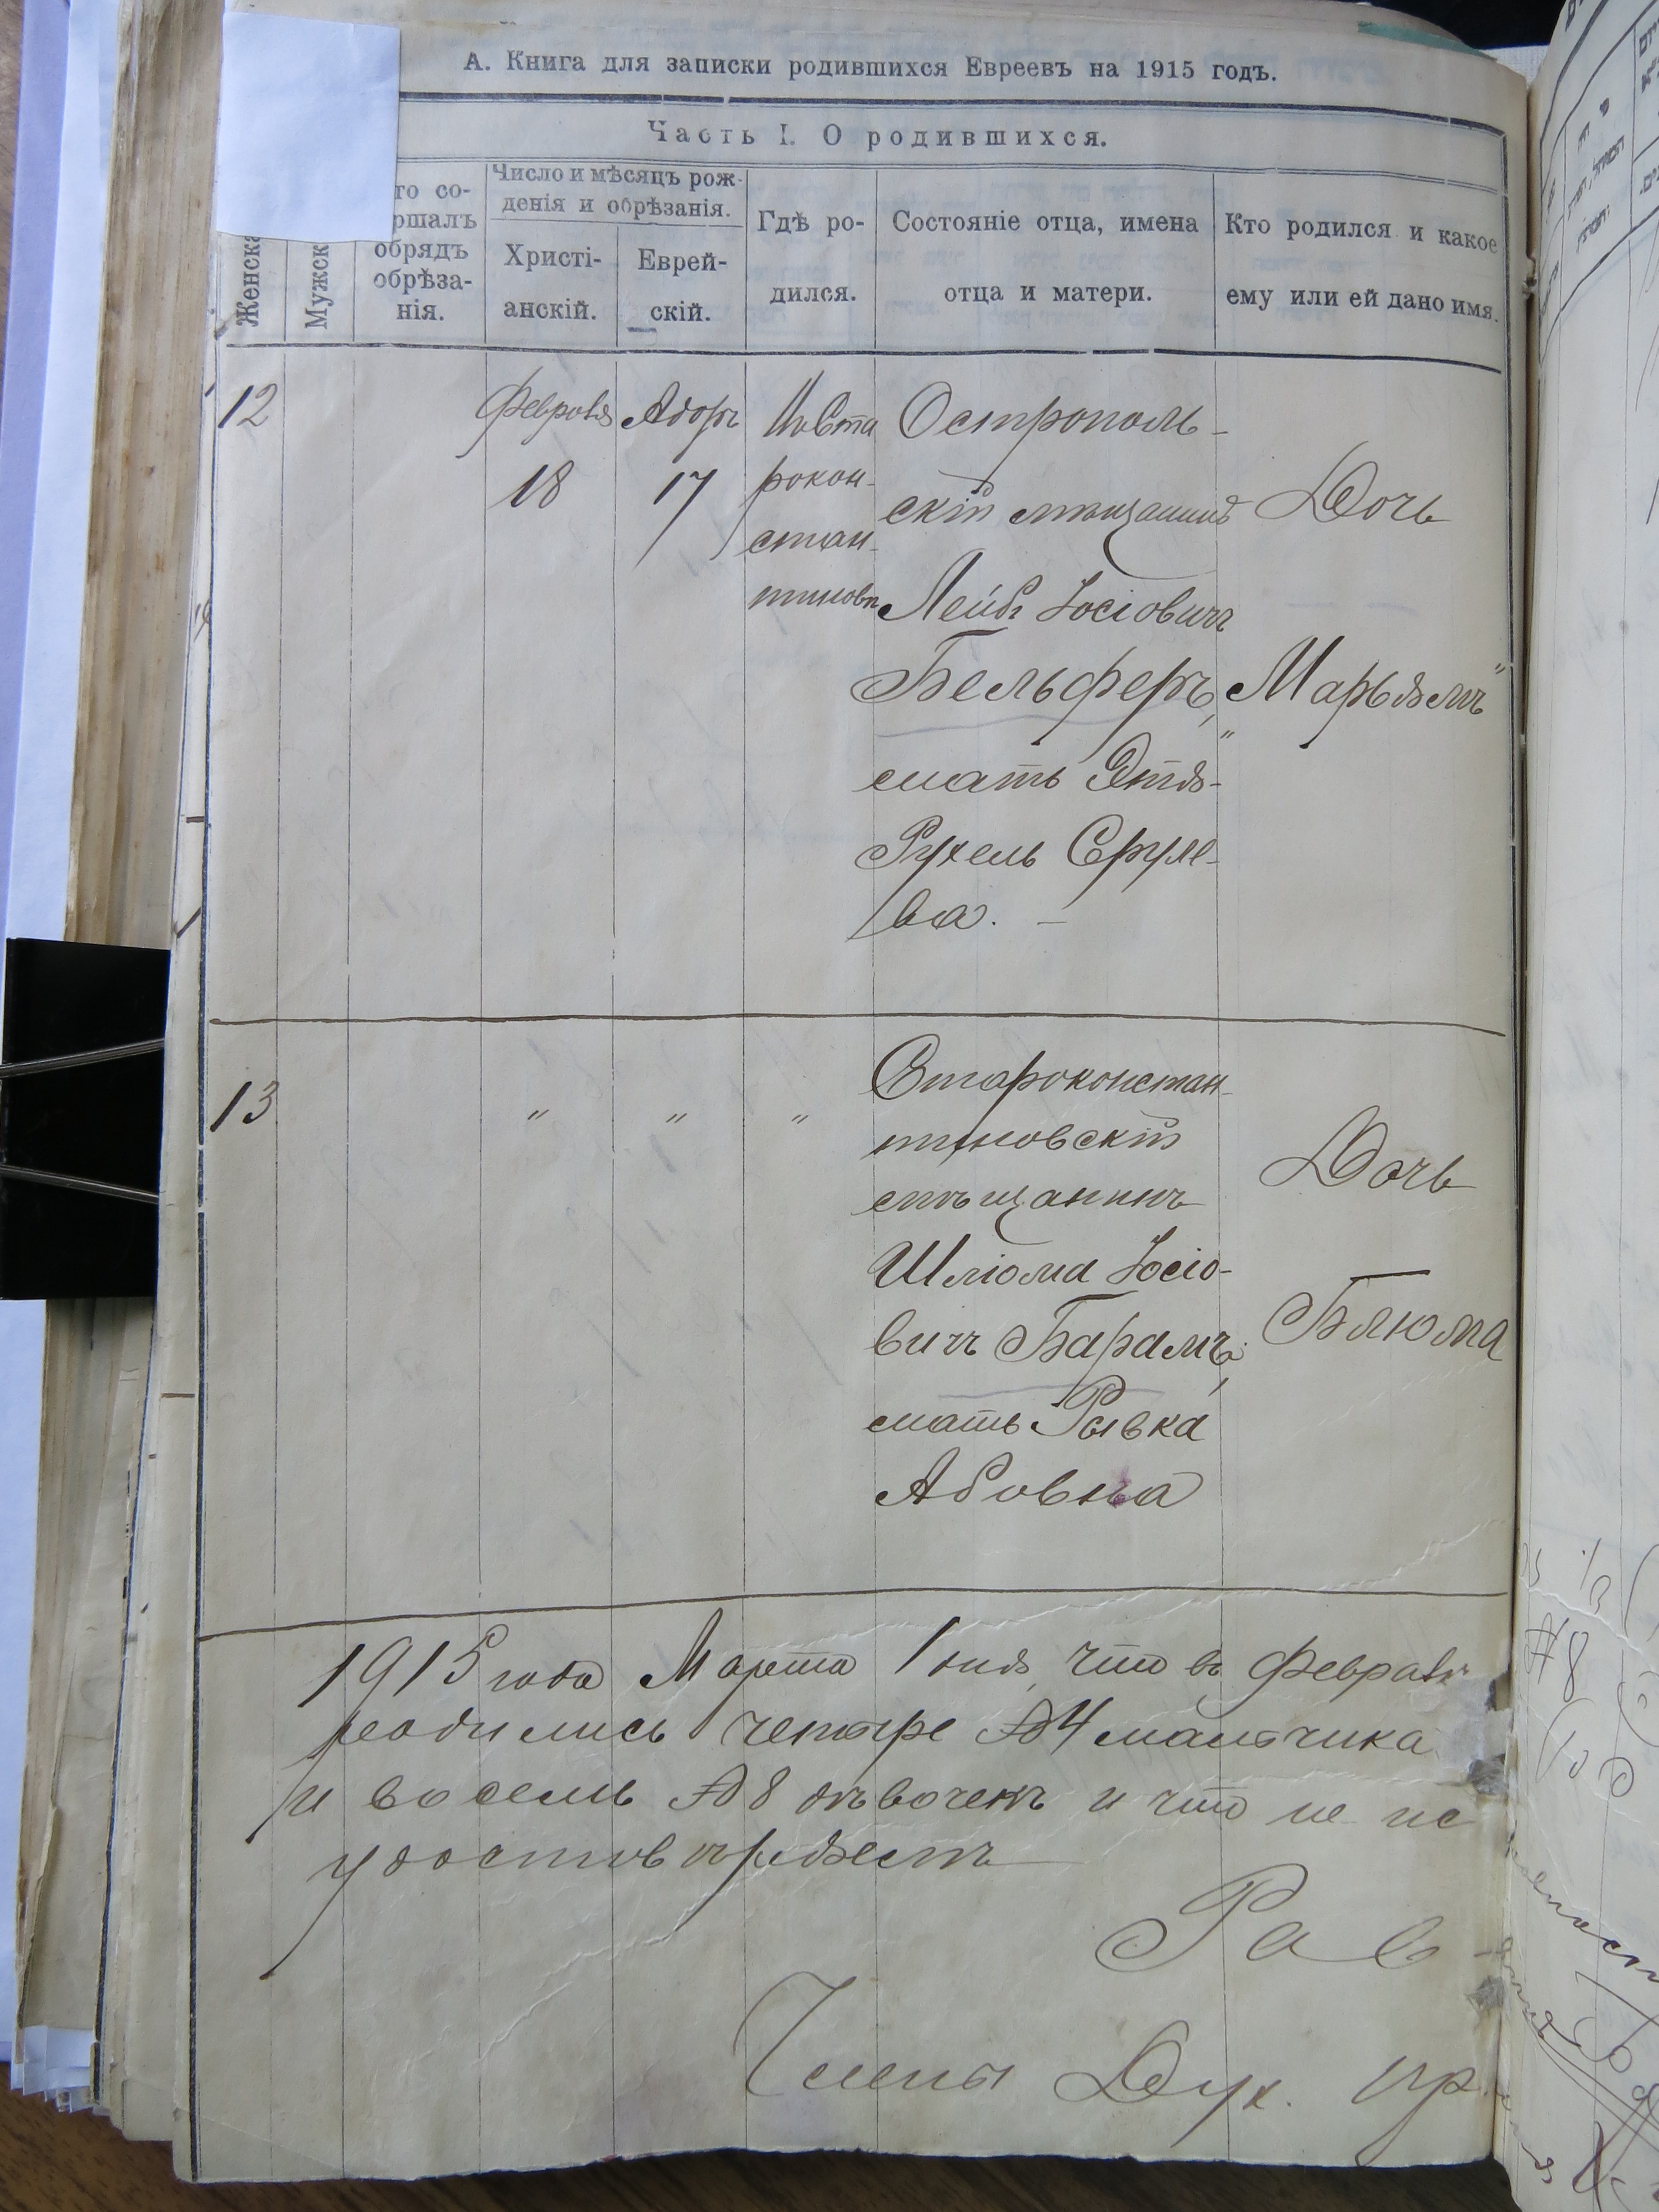 А. Книга для записки родившихся Евреевъ на 1915 годъ.
Часть I. О родившихся.
Женска
Мужск
то со-
ршалъ
обрядъ
обрѣза-
нія.
Число и мѣсяцъ рож-
денія и обрѣзанія.
Христі-
анскій.
Еврей-
скій.
Гдѣ ро-
дился.
Состояніе отца, имена
отца и матери.
Кто родился и какое
ему или ей дано имя.
12
Февраля
18
Адоръ
17
рокон-
стан-
Острополь-
скій мѣщанинъ
Лейбъ Іосіовичъ
Бельферъ,
мать Этля-
Рухель Сруле-
ва. —
Дочь
„Марьямъ"
13
"
"
"
Староконстан-
тиновскій
мѣщанинъ
Шліома Іосіо-
вичъ Барамъ,
мать Рывка
Абовна
Дочь
Блюма
1915 года Марта 1 дня, что въ Февралѣ
родились четыре 4 мальчика
и восемь 8 дѣвочекъ и что не ис
удостовѣряемъ
Рав
Члены Дух. пр